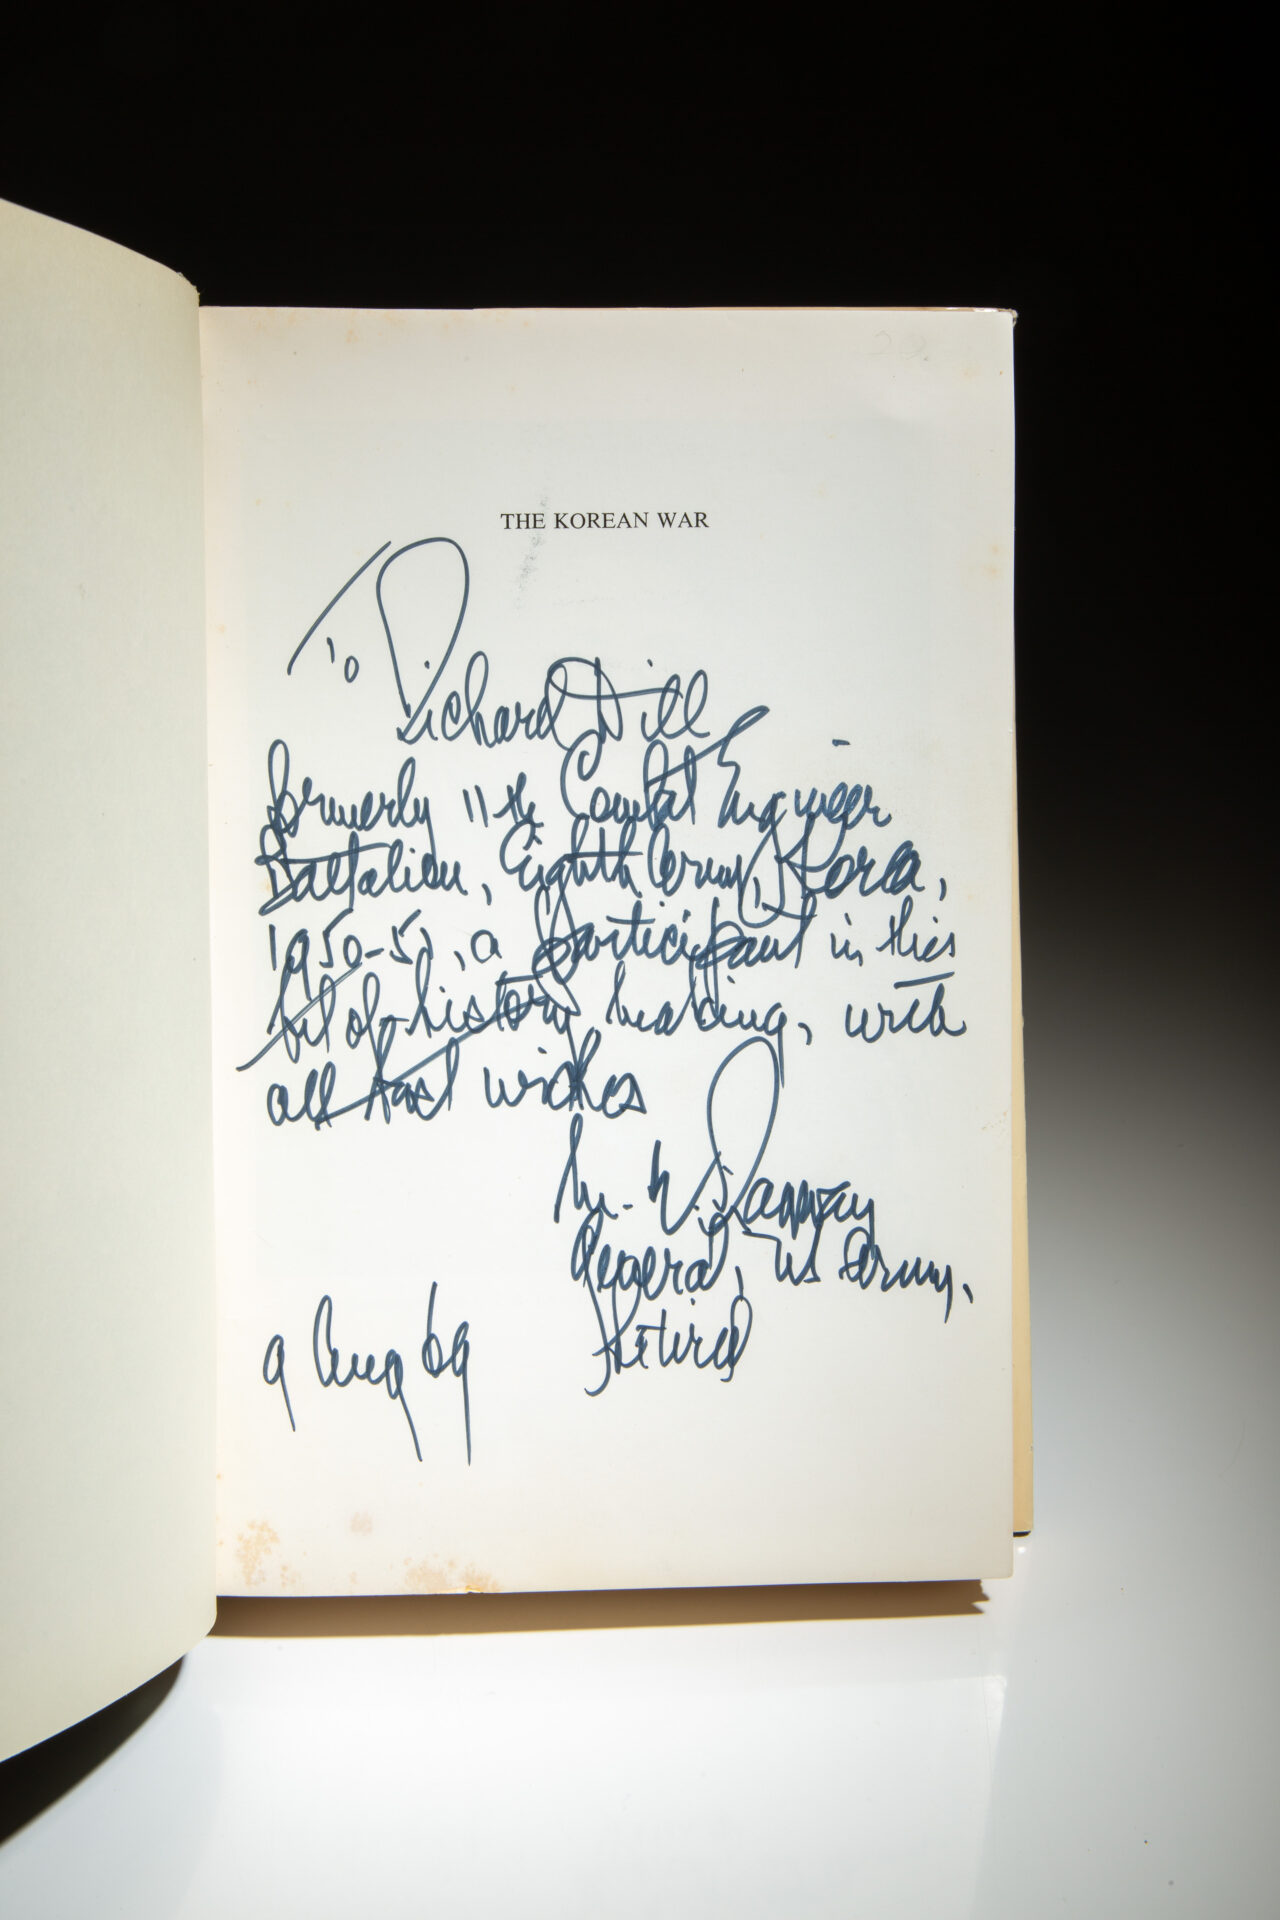 THE KOREAN WAR
To
Richard Dill
formerly 11th Combat Engineer
Battalion, Eighth Army, Korea,
1950-51, a participant in this
bit of history making, with
all best wishes
M. B. Ridgway
General, US Army,
Retired
9 Aug 69